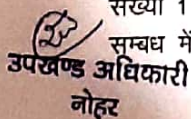 संख्या 1
सम्बध में
उपखण्ड अधिकारी
नोहर